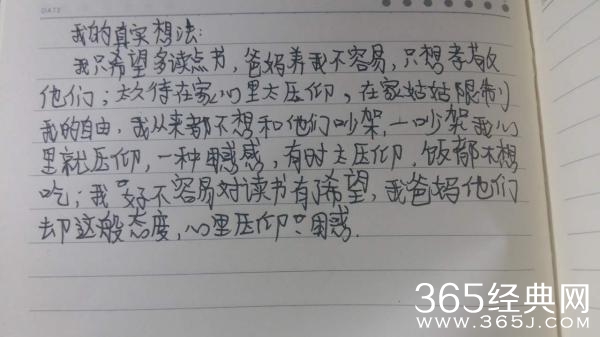 DATE
我的真实想法:
我只希望多读点书,爸妈养我不容易,只想孝敬
他们;太久待在家心里太压仰、在家姑姑限制
我的自由,我从来都不想和他们吵架,一吵架我心
里就压仰,一种困惑感,有时太压仰,饭都不想
吃;我"好不容易对读书有了希望,我爸妈他们
却这般态度,心里压仰"困惑.
365经典网
www.365J.com